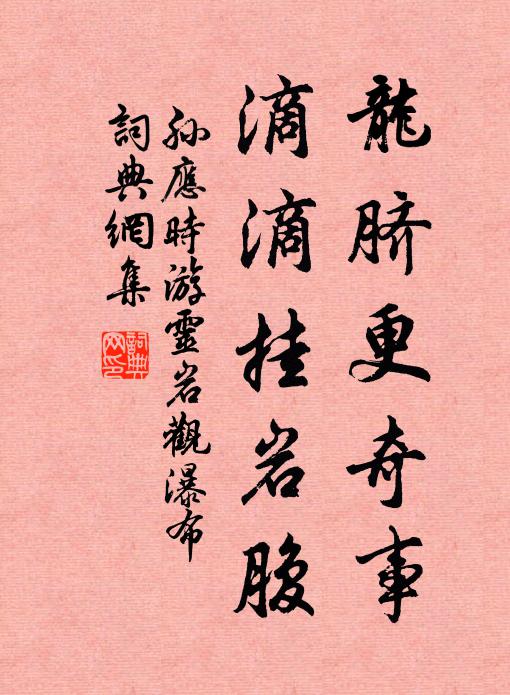 龍脐更奇事
滴滴挂岩腹
孙應時游靈岩觀瀑布
詞典網集
詞典網印